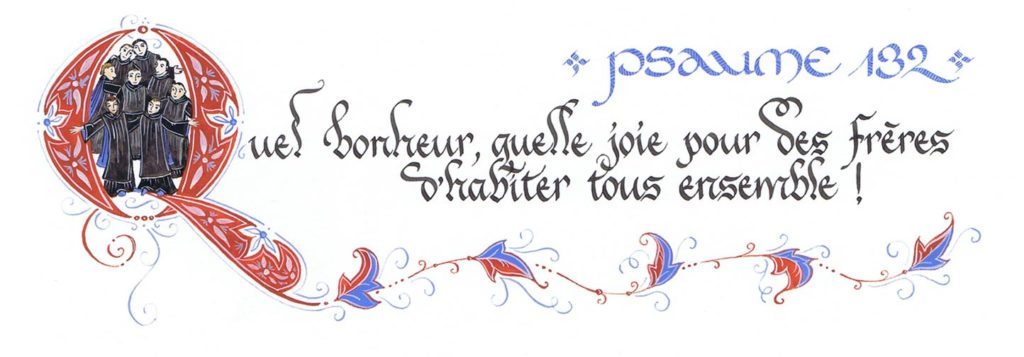 Psaume 132
Quel bonheur, quelle joie pour des frères
d'habiter tous ensemble !